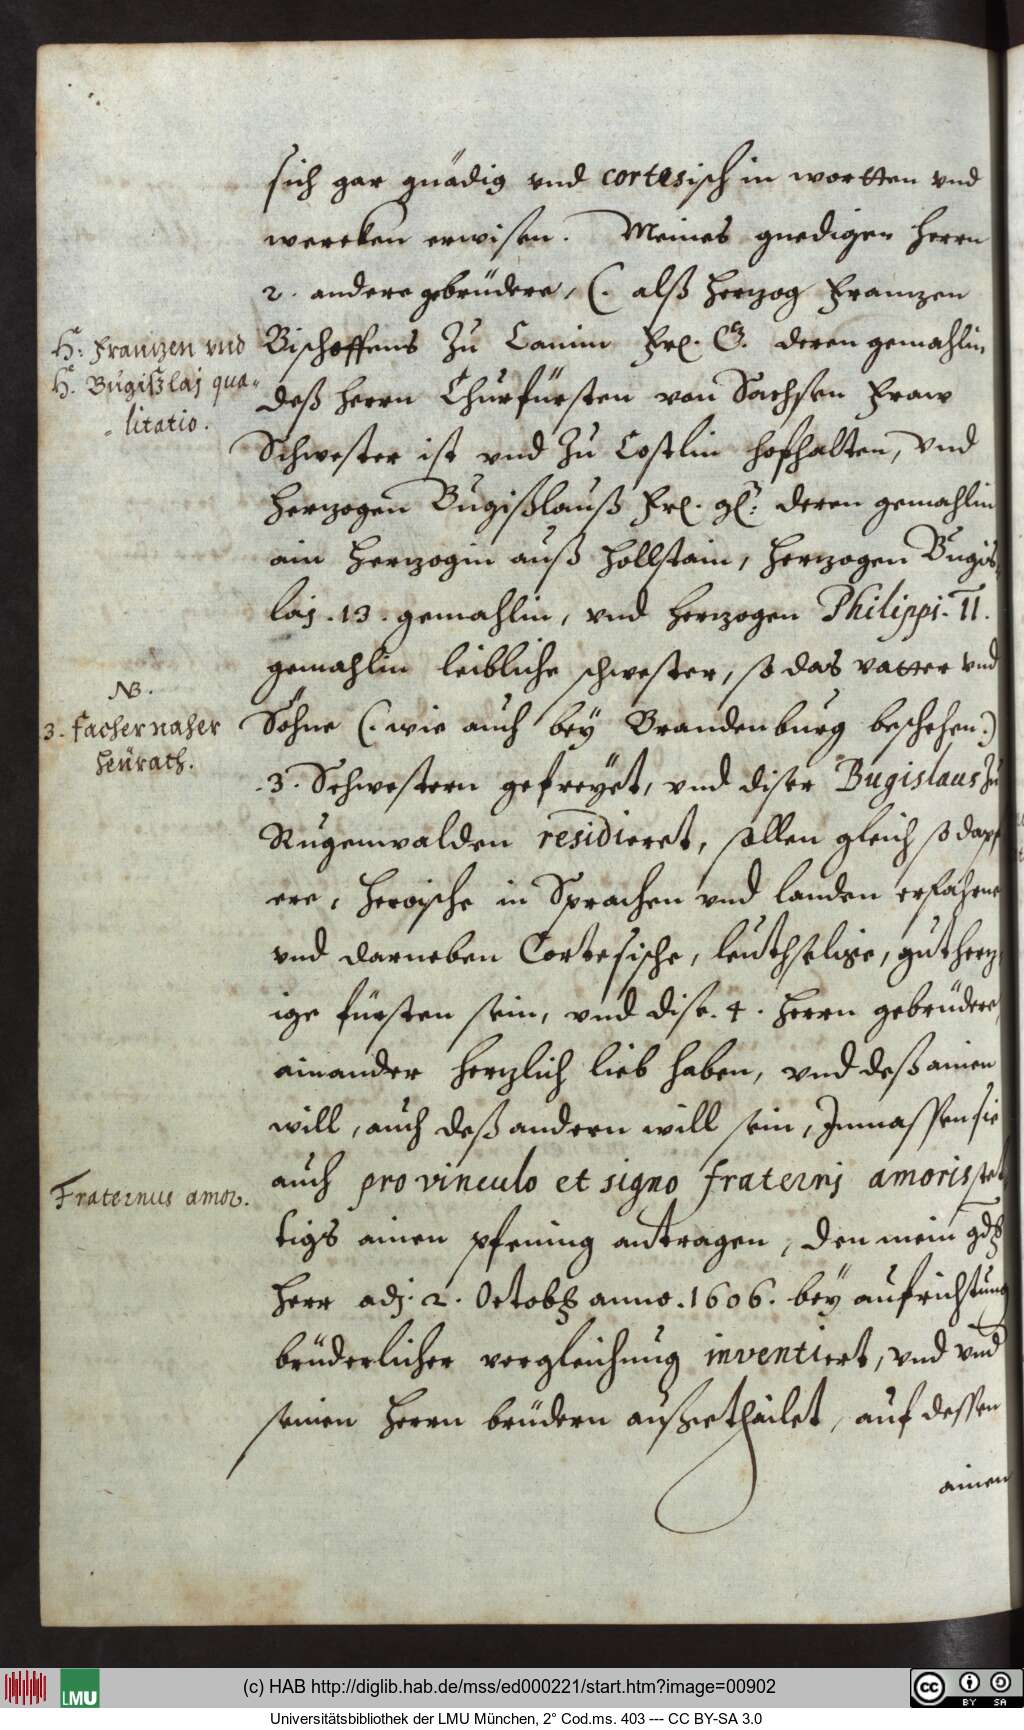 sich gar gnädig vnd cortesisch in wortten vnd
wercken erwisen. Meines gnedigen herrn
2. andere gebrüdere, (. alß herzog Frantzen
H: Frantzen vnd
H. Bugißlaj qua-
litatio.
Bischoffens Zu Camin Frl. G. deren gemahlin
deß herrn Churfürsten von Sachsen Fraw
Schwester ist vnd Zu Coßlin hofhalten, Vnd
herzogen Bugißlauß Frl. gl: deren gemahlin
ain herzogin auß hollstain, herzogen Bugis
laj. 13. gemahlin, vnd herzogen Philippi. II.
gemahlin leibliche schwester, so das vatter vnd
NB.
3. facher naher
heürath.
Söhne (. wie auch bey Brandenburg beschehen.)
.3. Schwestern gefreyet, vnd diser Bugislaus Zu
Rugenwalden residieret, sollen gleich so dapf
ere, heroische in Sprachen vnd landen erfahrne
vnd darneben Cortesische, leuthselige, guthertz
ige fürsten sein, vnd dise .4. herrn gebrüdere,
ainander herzlich lieb haben, vnd deß ainen
will, auch deß andern will sein, Inmassen sie
Fraternus amor.
auch pro vinculo et signo fraternj amoris stet
tigs ainen pfening antragen, den mein gdr
herr adj. 2. Octobr anno. 1606. bey aufrichtung
brüderlicher vergleichung inventiert, vnd vnd
seinen herrn brüdern außgethailet, auf dessen
ainen
(c) HAB http://diglib.hab.de/mss/ed000221/start.htm?image=00902
LMU
CC BY SA
Universitätsbibliothek der LMU München, 2° Cod.ms. 403 --- CC BY-SA 3.0